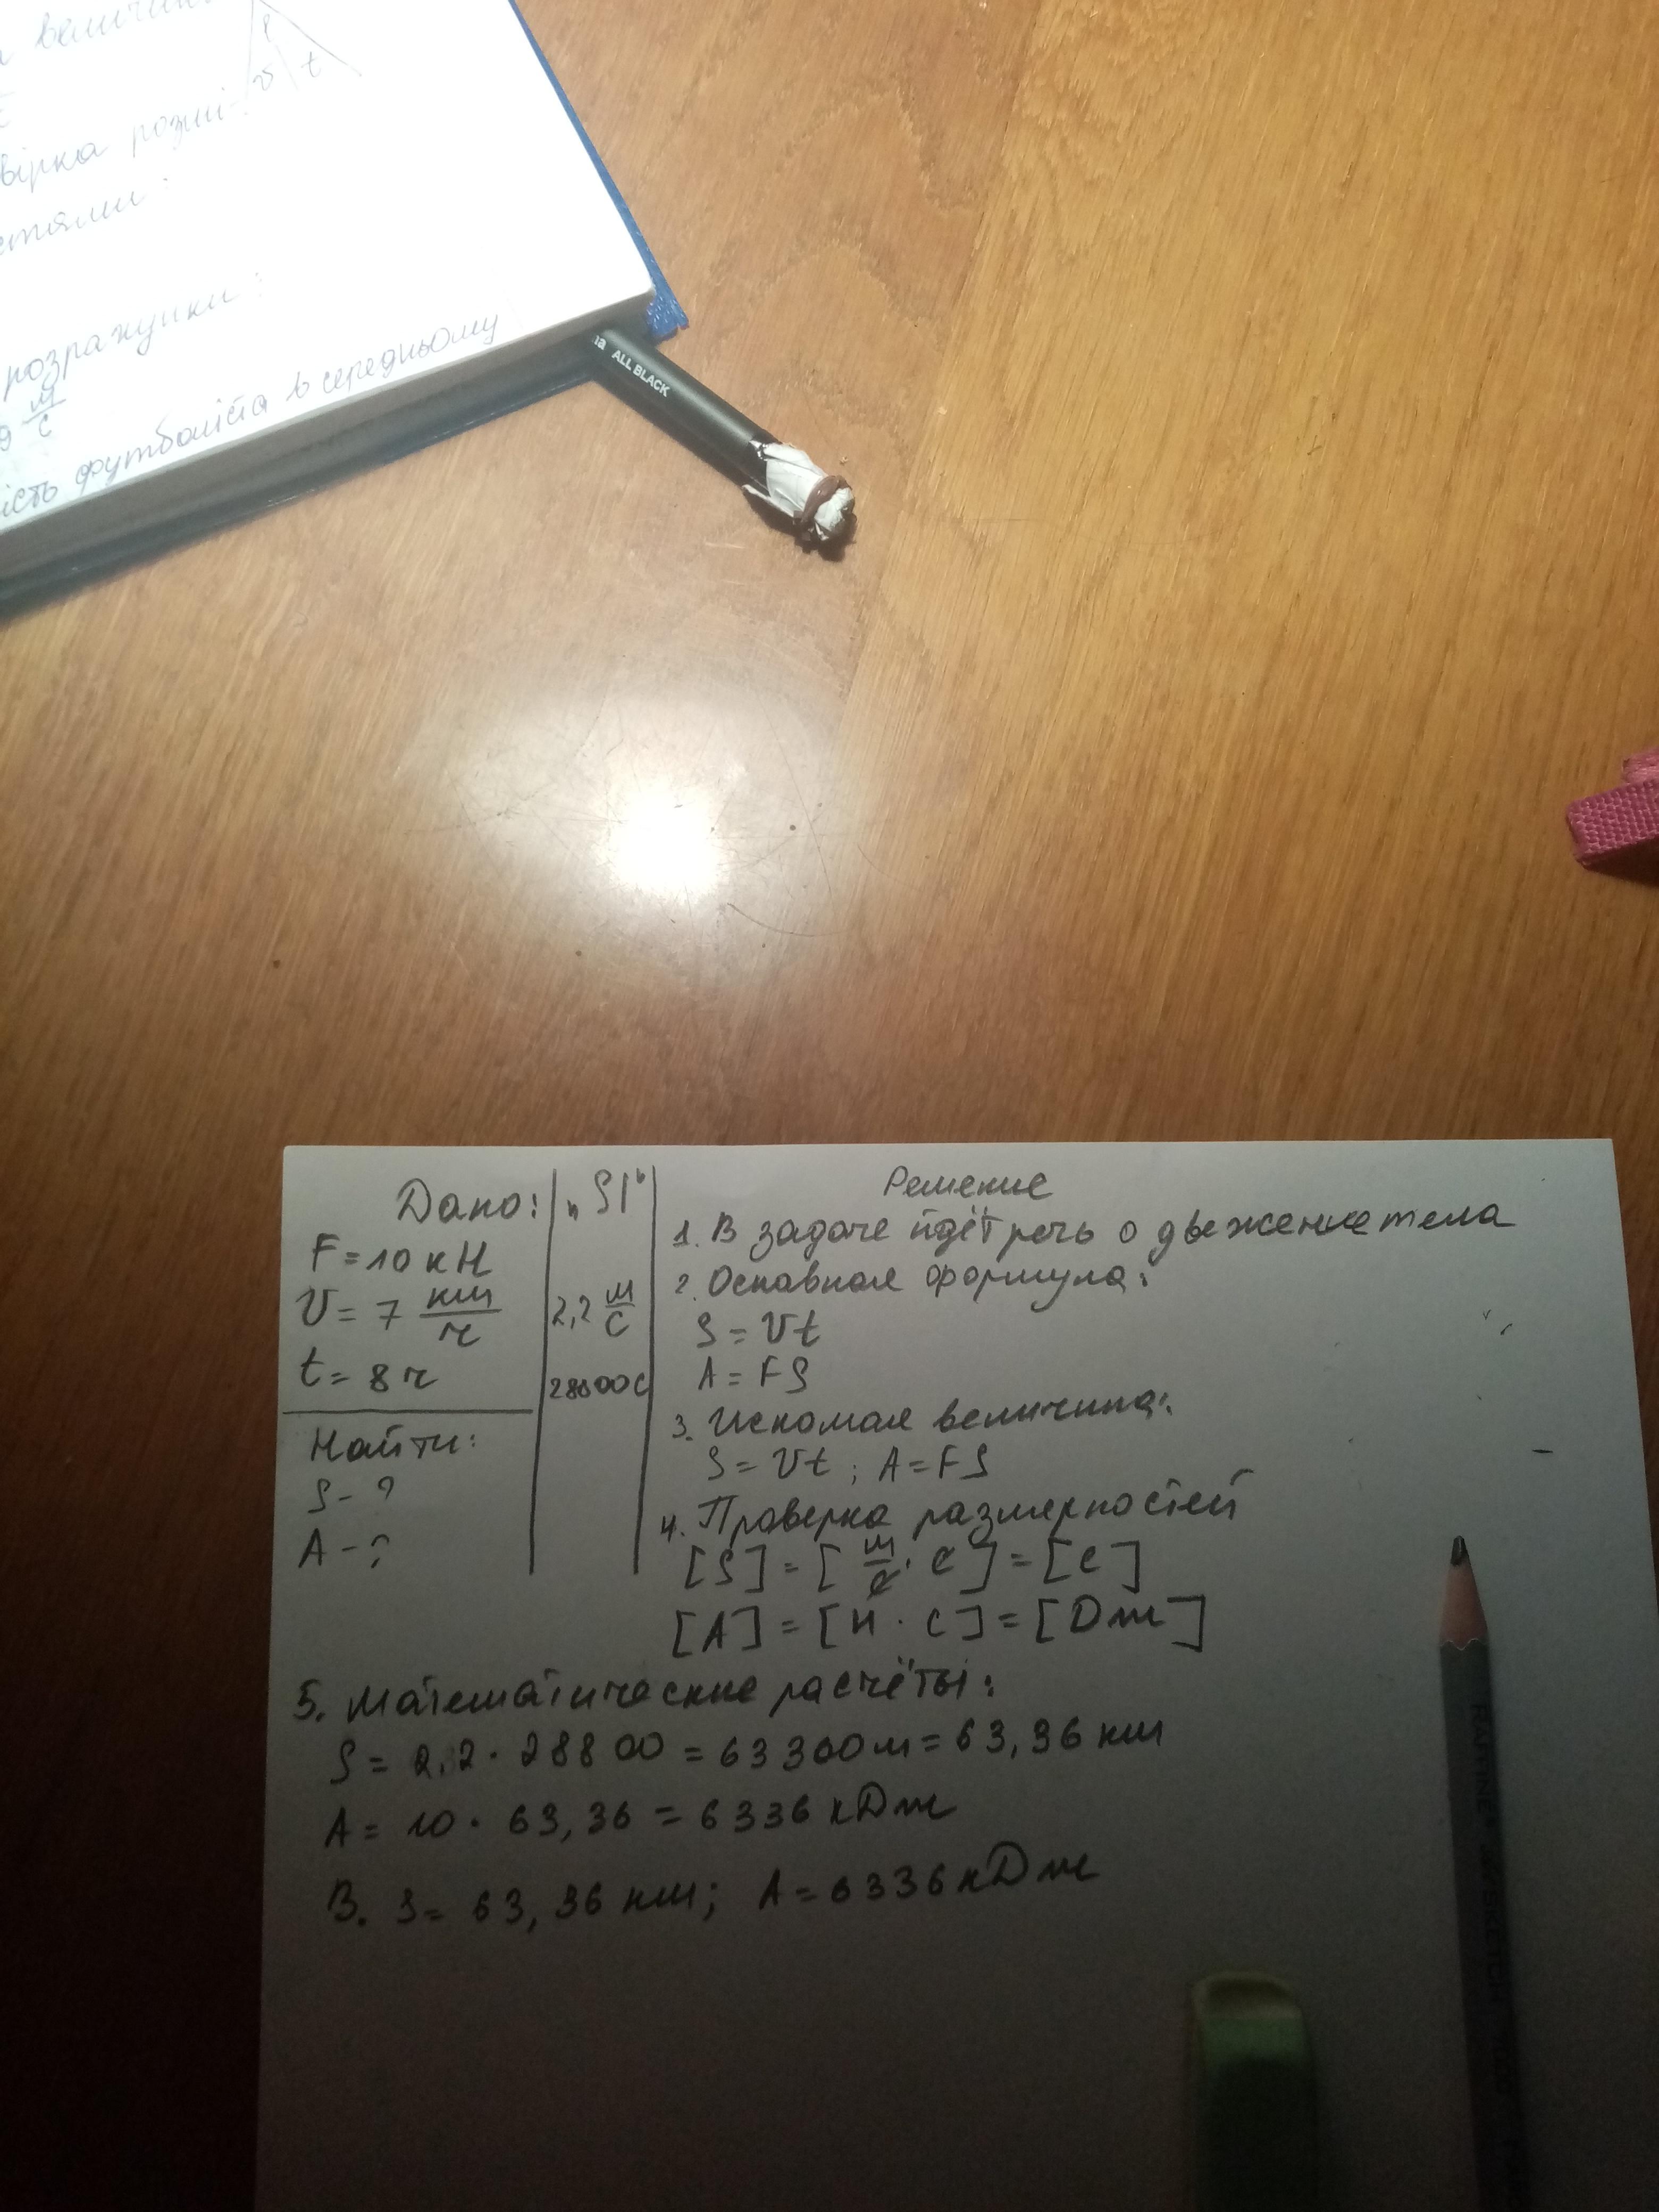 величин
ρ
v t
вірка розмі-
стями:
розрахунки:
9 м/с
ість футболіста в середньому
na ALL BLACK
Дано: "SI"
F=10кН
V= 7 км/ч 2,2 м/с
t= 8ч 28800с
Найти:
S-?
A-?
Решение
1. В задаче идёт речь о движение тела
2. Основная формула:
S=Vt
A=FS
3. Искомая величина:
S=Vt; A=FS
4. Проверка размерностей
[S]=[м/с·с]=[с]
[A]=[Н·с]=[Dж]
5. Математические расчёты:
S= 2,2·28800=63300м=63,36 км
A= 10·63,36=6336 кDж
В. S= 63,36 км; A=6336кDж